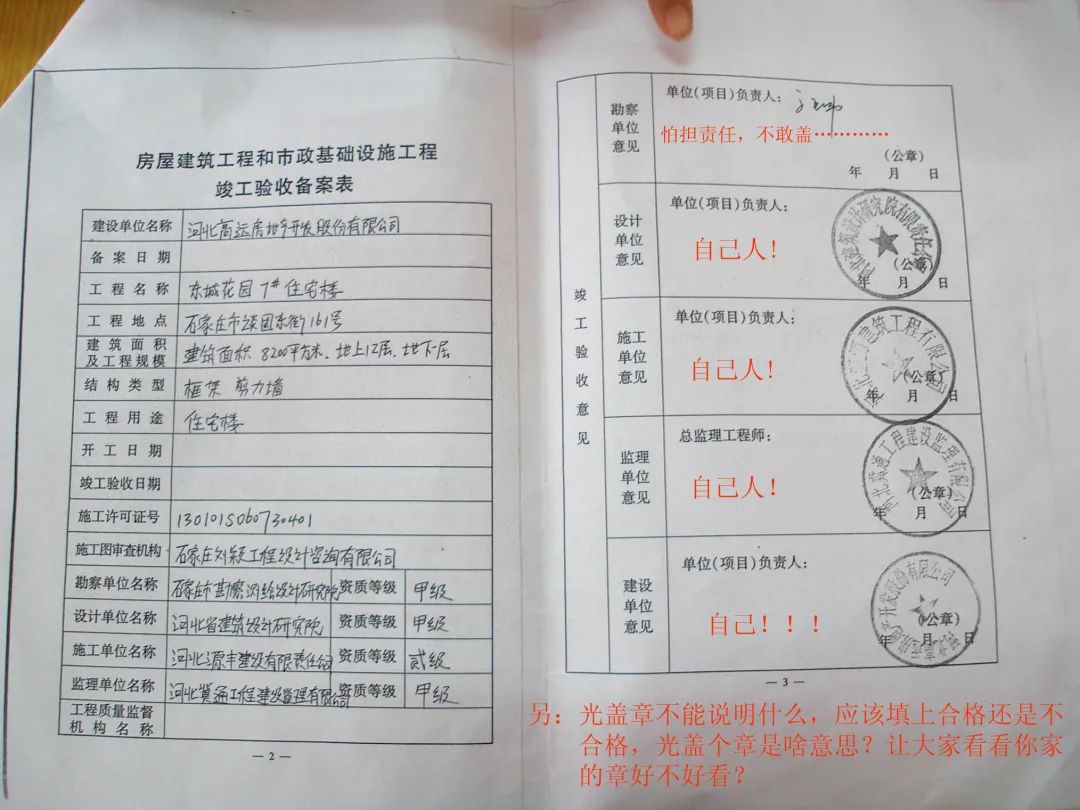 房屋建筑工程和市政基础设施工程
竣工验收备案表
建设单位名称 河北高远房地产开发股份有限公司
备案日期
工程名称 东城花园 7# 住宅楼
工程地点 石家庄市谈固东街161号
建筑面积及工程规模 建筑面积 8200平方米、地上12层、地下一层
结构类型 框架 剪力墙
工程用途 住宅楼
开工日期
竣工验收日期
施工许可证号 130101S060730401
施工图审查机构 石家庄 工程设计咨询有限公司
勘察单位名称 石家庄市勘察测绘设计研究院 资质等级 甲级
设计单位名称 河北省建筑设计研究院 资质等级 甲级
施工单位名称 河北源丰建设有限责任公司 资质等级 贰级
监理单位名称 河北冀通工程建设监理有限公司 资质等级 甲级
工程质量监督
机构名称
— 2 —
竣工验收意见
勘察
单位
意见
单位(项目)负责人:
怕担责任,不敢盖…………
(公章)
年 月 日
设计
单位
意见
单位(项目)负责人:
自己人!
河北建筑设计研究院有限责任公司
(公章)
年 月 日
施工
单位
意见
单位(项目)负责人:
自己人!
建筑工程有限公司
(公章)
年 月 日
监理
单位
意见
总监理工程师:
自己人!
河北冀通工程建设监理有限公司
(公章)
年 月 日
建设
单位
意见
单位(项目)负责人:
自己!!!
河北高远房地产开发股份有限公司
(公章)
年 月 日
— 3 —
另:光盖章不能说明什么,应该填上合格还是不
合格,光盖个章是啥意思?让大家看看你家
的章好不好看?